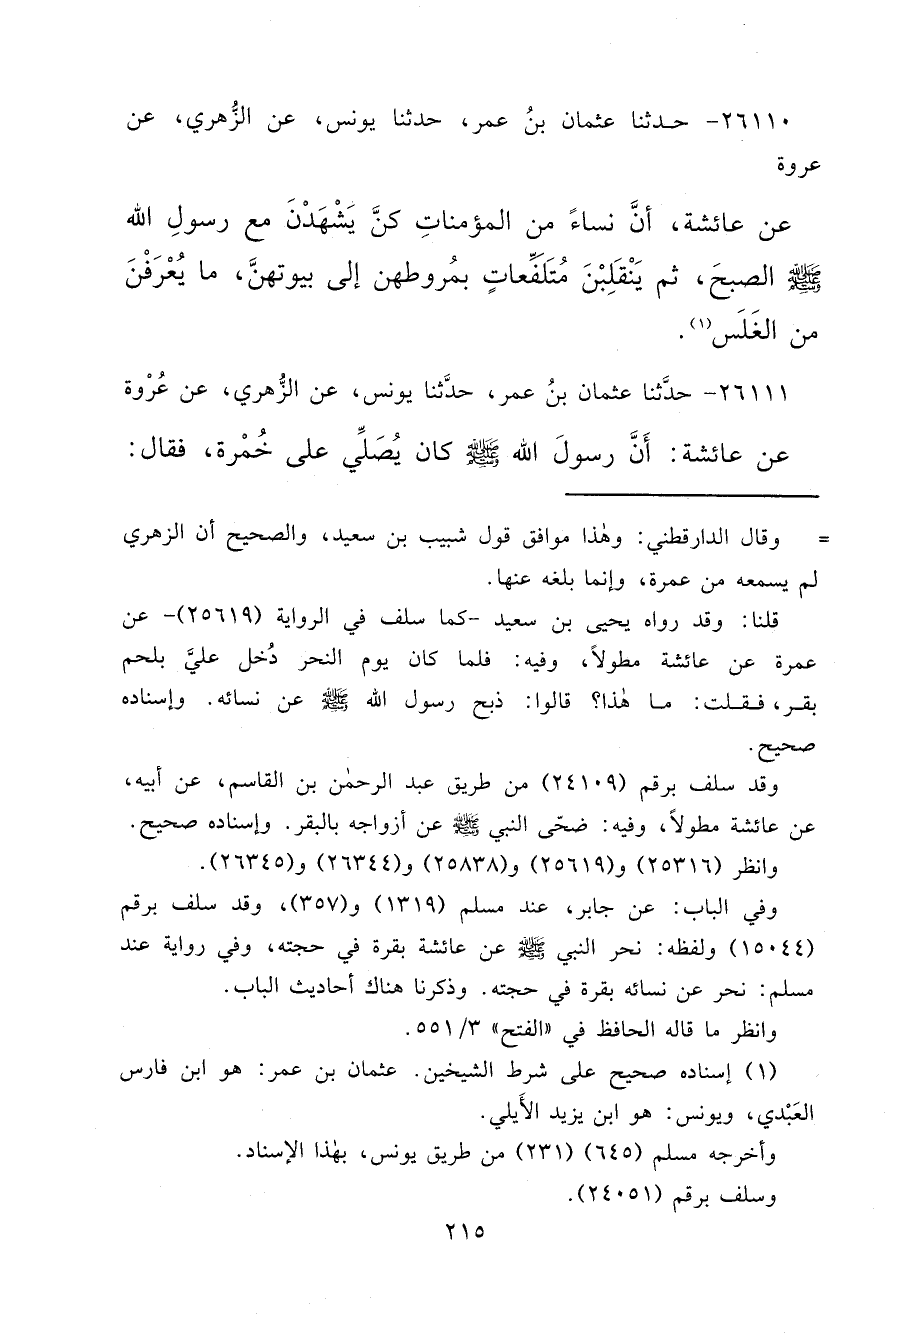 ٢٦١١٠- حـدثنا عثمان بنُ عمر، حدثنا يونس، عن الزُّهري، عن
عروة
عن عائشة، أنَّ نساءً من المؤمناتِ كنَّ يَشْهَدْنَ مع رسولِ الله
ﷺ الصبحَ، ثم يَنْقَلِبْنَ مُتَلَفِّعاتٍ بمُروطهن إلى بيوتهنَّ، ما يُعْرَفْنَ
من الغَلَس(١).
٢٦١١١- حدَّثنا عثمان بنُ عمر، حدَّثنا يونس، عن الزُّهري، عن عُرْوة
عن عائشة: أَنَّ رسولَ الله ﷺ كان يُصَلِّي على خُمْرة، فقال:
= وقال الدارقطني: وهٰذا موافق قول شبيب بن سعيد، والصحيح أن الزهري
لم يسمعه من عمرة، وإنما بلغه عنها.
قلنا: وقد رواه يحيى بن سعيد -كما سلف في الرواية (٢٥٦١٩)- عن
عمرة عن عائشة مطولاً، وفيه: فلما كان يوم النحر دُخل عليَّ بلحم
بقـر، فـقـلـت: مـا هٰذا؟ قالوا: ذبح رسول الله ﷺ عن نسائه. وإسناده
صحيح.
وقد سلف برقم (٢٤١٠٩) من طريق عبد الرحمٰن بن القاسم، عن أبيه،
عن عائشة مطولاً، وفيه: ضحّى النبي ﷺ عن أزواجه بالبقر. وإسناده صحيح.
وانظر (٢٥٣١٦) و(٢٥٦١٩) و(٢٥٨٣٨) و(٢٦٣٤٤) و(٢٦٣٤٥).
وفي الباب: عن جابر، عند مسلم (١٣١٩) و(٣٥٧)، وقد سلف برقم
(١٥٠٤٤) ولفظه: نحر النبي ﷺ عن عائشة بقرة في حجته، وفي رواية عند
مسلم: نحر عن نسائه بقرة في حجته. وذكرنا هناك أحاديث الباب.
وانظر ما قاله الحافظ في «الفتح» ٥٥١/٣.
(١) إسناده صحيح على شرط الشيخين. عثمان بن عمر: هو ابن فارس
العَبْدي، ويونس: هو ابن يزيد الأَيلي.
وأخرجه مسلم (٦٤٥) (٢٣١) من طريق يونس، بهٰذا الإسناد.
وسلف برقم (٢٤٠٥١).
٢١٥